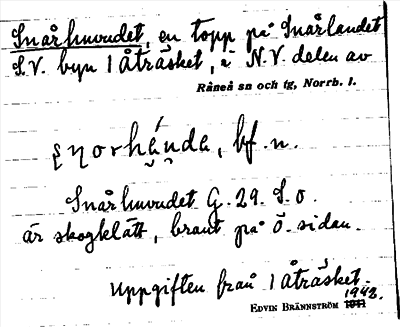 Snårhuvudet, en topp på Snårlandet
S.V. byn 1 Åträsket, i N.V. delen av
Råneå sn och tg, Norrb. l.
bf. n.
Snårhuvudet G. 29. S.O.
är skogklätt, brant på Ö. sidan.
Uppgiften från 1 Åträsket.
1942.
EDVIN BRÄNNSTRÖM 1941